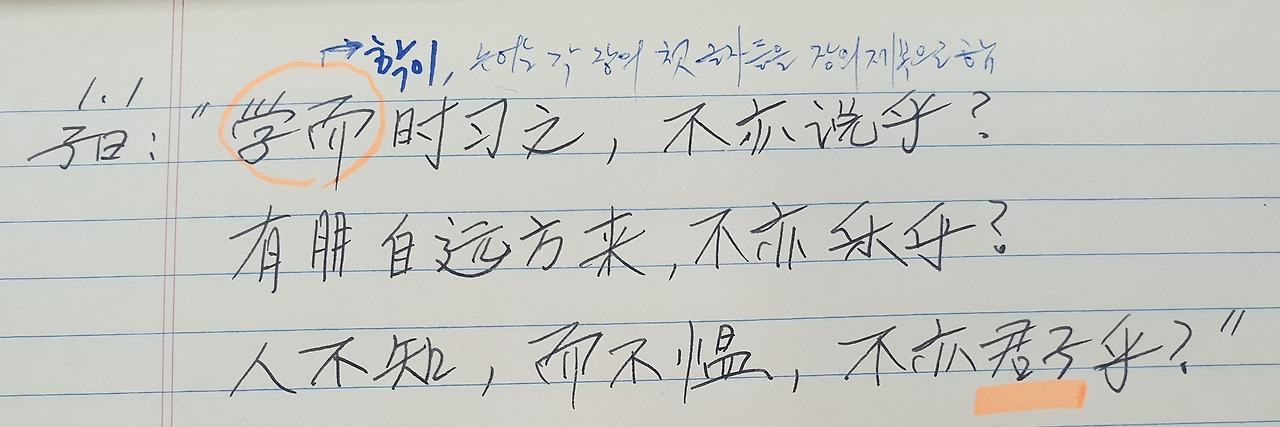 →학이, 논어는 각 장의 첫 글자들을 장의 제목으로 함
1.1
子曰："学而时习之，不亦说乎？
有朋自远方来，不亦乐乎？
人不知，而不愠，不亦君子乎？"